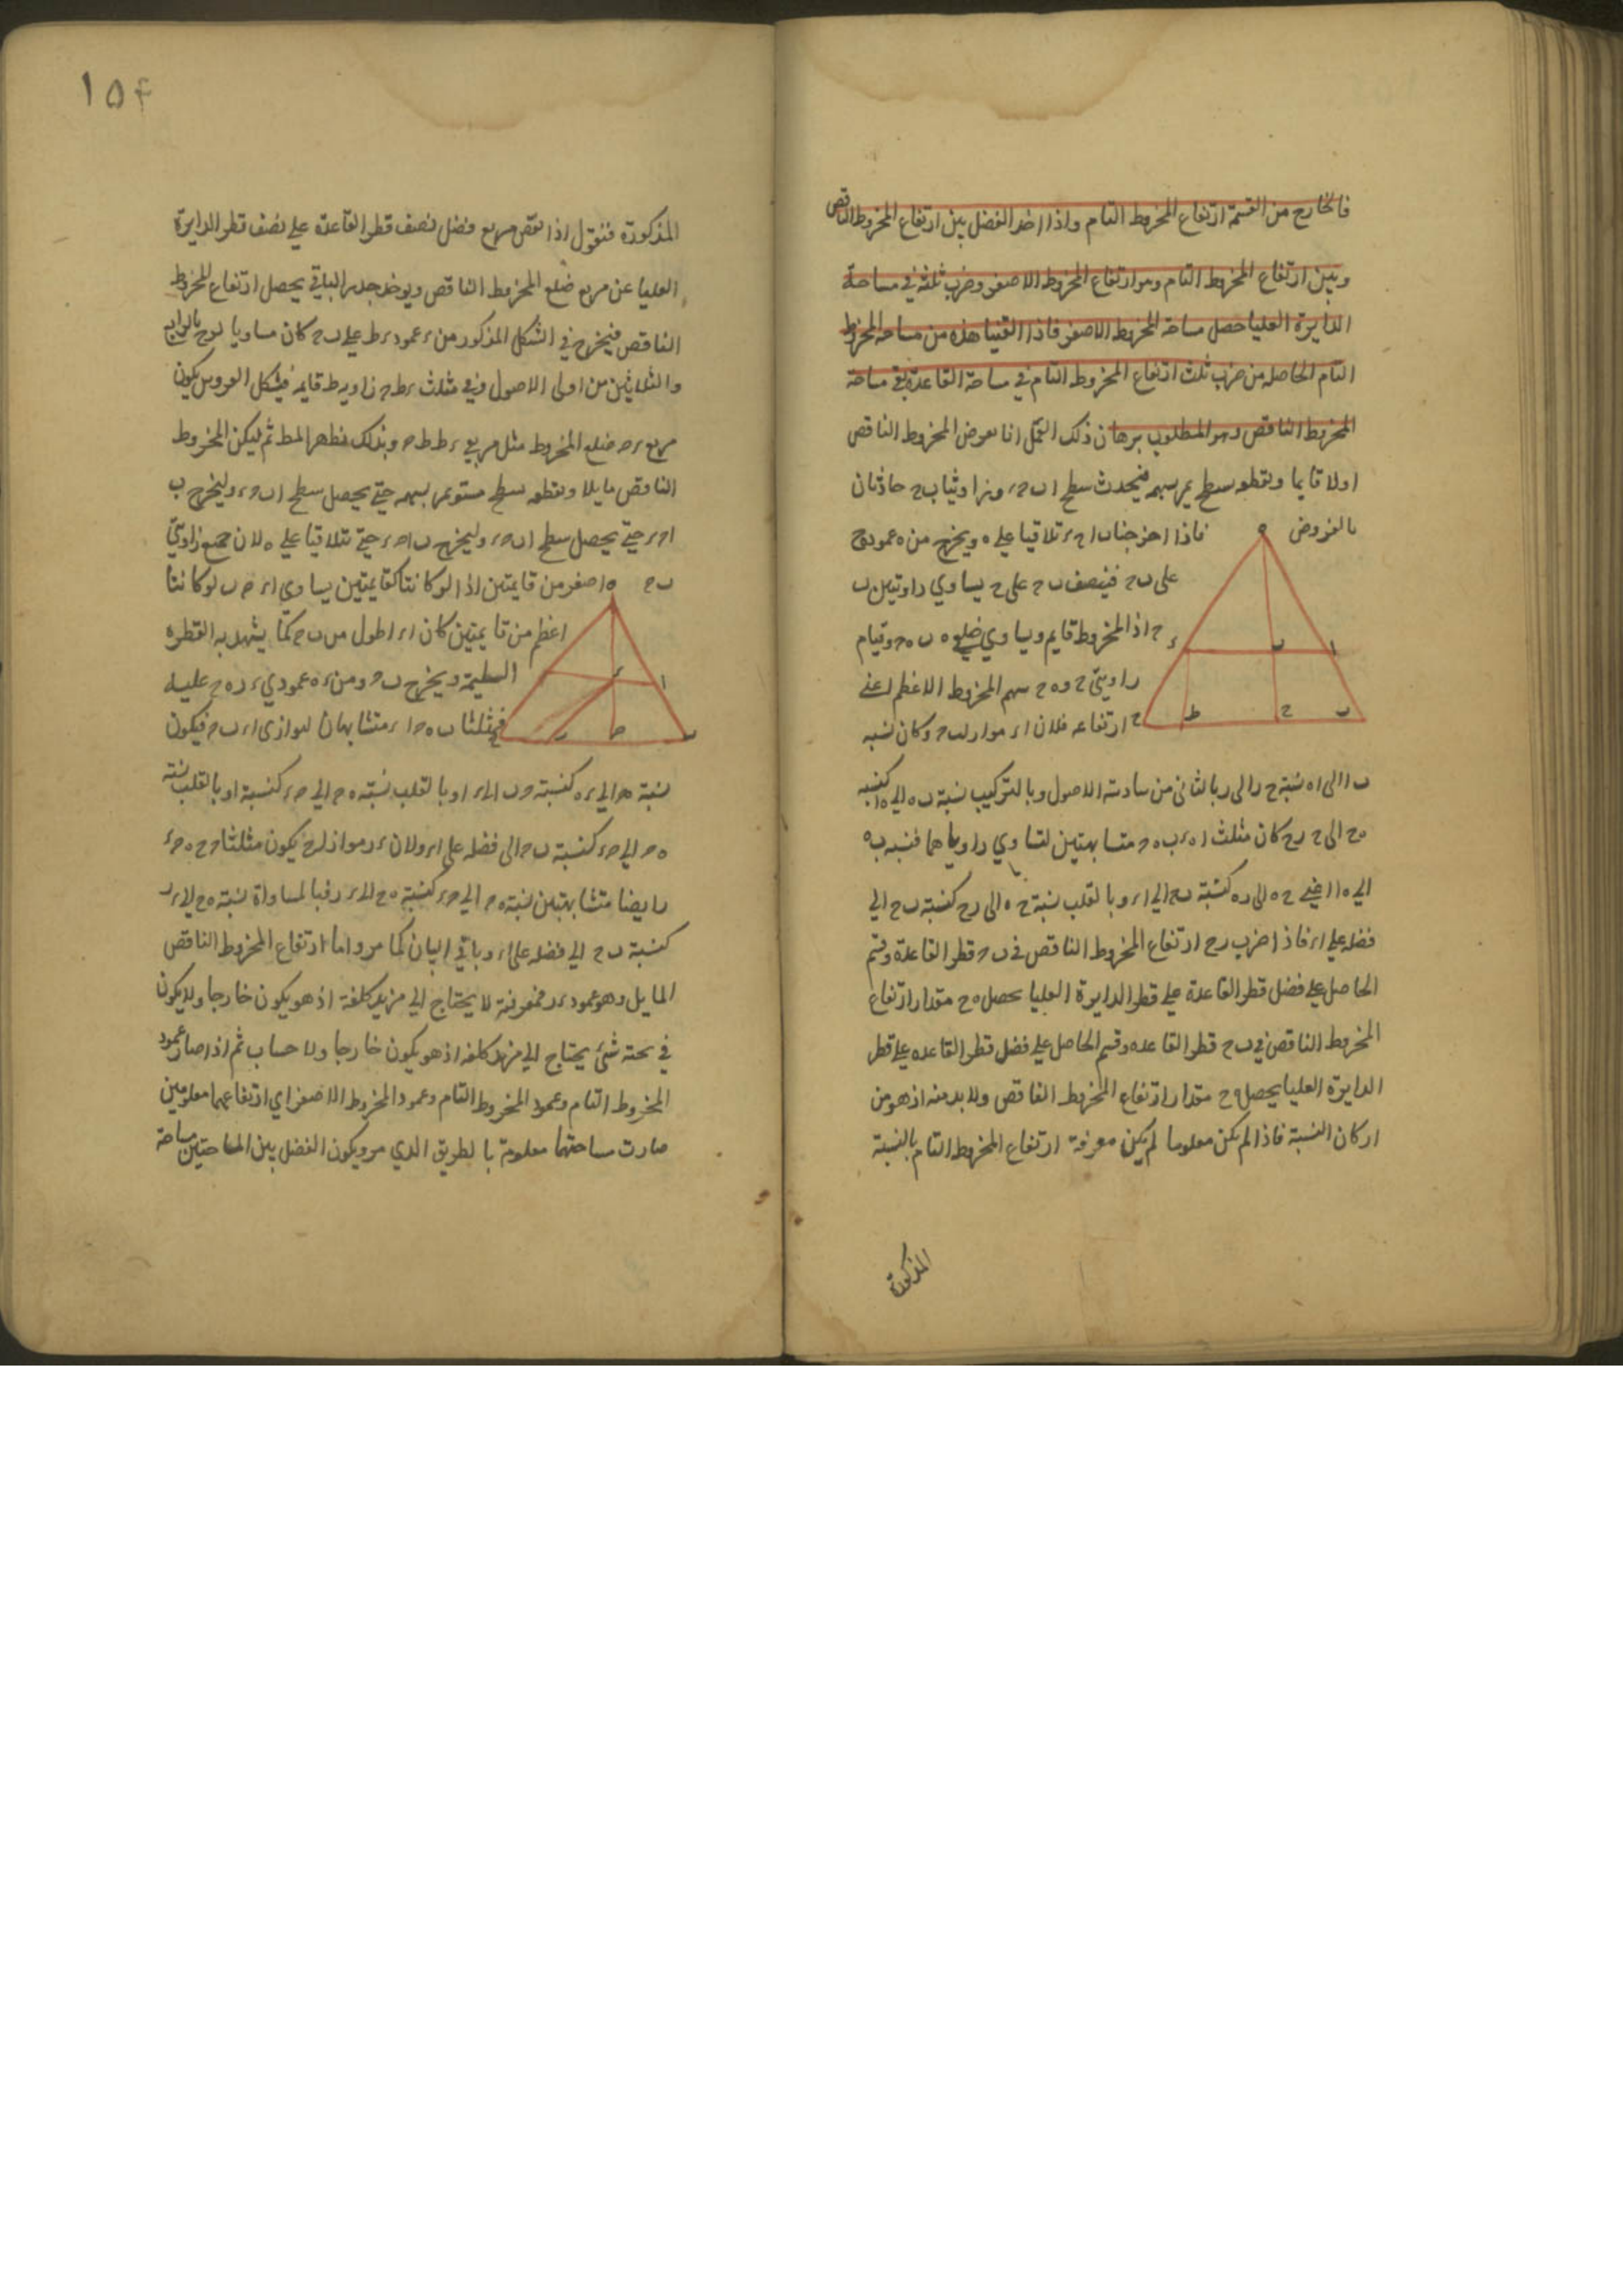 فالخارج من القسمة ارتفاع المخروط التام واذا اخذ الفضل بين ارتفاع المخروط الناقص
وبين ارتفاع المخروط التام وهو ارتفاع المخروط الاصغر وضرب ثلثه في مساحة
الدايرة العليا حصل مساحة المخروط الاصغر فاذا القينا هذه من مساحه المخروط
التام الحاصله من ضرب ثلث ارتفاع المخروط التام في مساحة القاعدة بقي مساحة
المخروط الناقص وهو المطلوب برهان ذلك العمل انا نعرض المخروط الناقص
اولا قايما ونقطعه بسطح يمر بسهمه فيحدث سطح ا ب ح د وزاويتا ب ح حادتان
بالفروض فاذا اخرجنا ب ا ح د تلاقيا على ه ويخرج من ه عمود ه ح
على ب ح فينصف ب ح على ح يساوي زاويتين ب
ح اذ المخروط قايم ويساوي ضلعي ه ب ه ح وقيام
زاويتي ح و ه ح سهم المخروط الاعظم اعني
ارتفاعه فلان ا د مواز لب ح وكان نسبه
ب ا الى ا ه نسبة ح ر الى ر بالثاني من سادسة الاصول وبالتركيب نسبة ب ه الى ه ا كنسبه
ه ح الى ح ر كان مثلث ا ه د ب ه ح متشابهتين لتساوي زواياهما فنسبه ب ه
الى ه ا اعني ح ه الى ر ه كنسبة ب ح الى ا د وبالقلب نسبة ح ه الى ر ح كنسبه ب ح الى
فضله على ا د فاذا ضرب ر ح ارتفاع المخروط الناقص في ب ح قطر القاعدة وقسم
الحاصل على فضل قطر القاعدة على قطر الدايرة العليا يحصل ه ح مقدار ارتفاع
المخروط الناقص في ب ح قطر القاعده وقسم الحاصل على فضل قطر القاعده على قطر
الدايرة العليا يحصل ه ح مقدار ارتفاع المخروط الناقص ولا بد منه اذ هو من
اركان النسبة فاذا لم يكن معلوما لم يكن معرفة ارتفاع المخروط التام بالنسبة
المذكورة
١٥۴
المذكورة فنقول اذا نقص مربع فضل نصف قطر القاعدة على نصف قطر الدايرة
العليا عن مربع ضلع المخروط الناقص ويوخذ جذر الباقي يحصل ارتفاع المخروط
الناقص فيخرج في الشكل المذكور من د عمود د ط على ب ح كان مساويا لر ح بالرابع
والثلاثين من اولى الاصول وفي مثلث د ط ح زاوية ط قايمة فبشكل العروس يكون
مربع د ح ضلع المخروط مثل مربعي د ط ط ح وبذلك يظهر المط ثم ليكن المخروط
الناقص مايلا ونقطعه بسطح مستو يمر بسهمه حتى يحصل سطح ا ب ح د وليخرج ب
ا ح د حتى يحصل سطح ا ب ح د وليخرج ب ا ح د حتى يتلاقيا على ه لان جميع زاويتي
ب ح اصغر من قايمتين اذ لو كانتا كقايمتين يساوي ا د ح ب لو كانتا
اعظم من قايمتين كان ا د اطول من ب ح كما يشهد به الفطرة
السليمة ويخرج ب ح ومن د ه عمودي د ر ه ح عليه
فمثلثا ب ه ح ا د متشابهان لتوازي ا د ب ح فيكون
نسبة ح ه الى د ه كنسبة ح ب الى ا د وبالقلب نسبة ه ح الى ح د كنسبة ا د وبالقلب نسبة
ه ح الى ح د كنسبة ب ح الى فضله على ا د ولان د ر مواز له ح يكون مثلثا د ر ح ه ح
ايضا متشابهتين نسبة ه ح الى ح د كنسبة ه ح الى د ر فبالمساواة نسبة ه ح الى د ر
كنسبة ب ح الى فضله على ا د وباقي البيان كما مر واما ارتفاع المخروط الناقص
المايل وهو عمود د ر فمعرفته لا يحتاج الى مزيد كلفة اذ هو يكون خارجا ولا يكون
في تحته شئ يحتاج الى مزيد كلفه اذ هو يكون خارجا ولا حساب ثم اذا صار عمود
المخروط التام وعمود المخروط التام وعمود المخروط الاصغر اي ارتفاعهما معلومين
صارت مساحتهما معلومة بالطريق الذي مر ويكون الفضل بين المساحتين مساحة